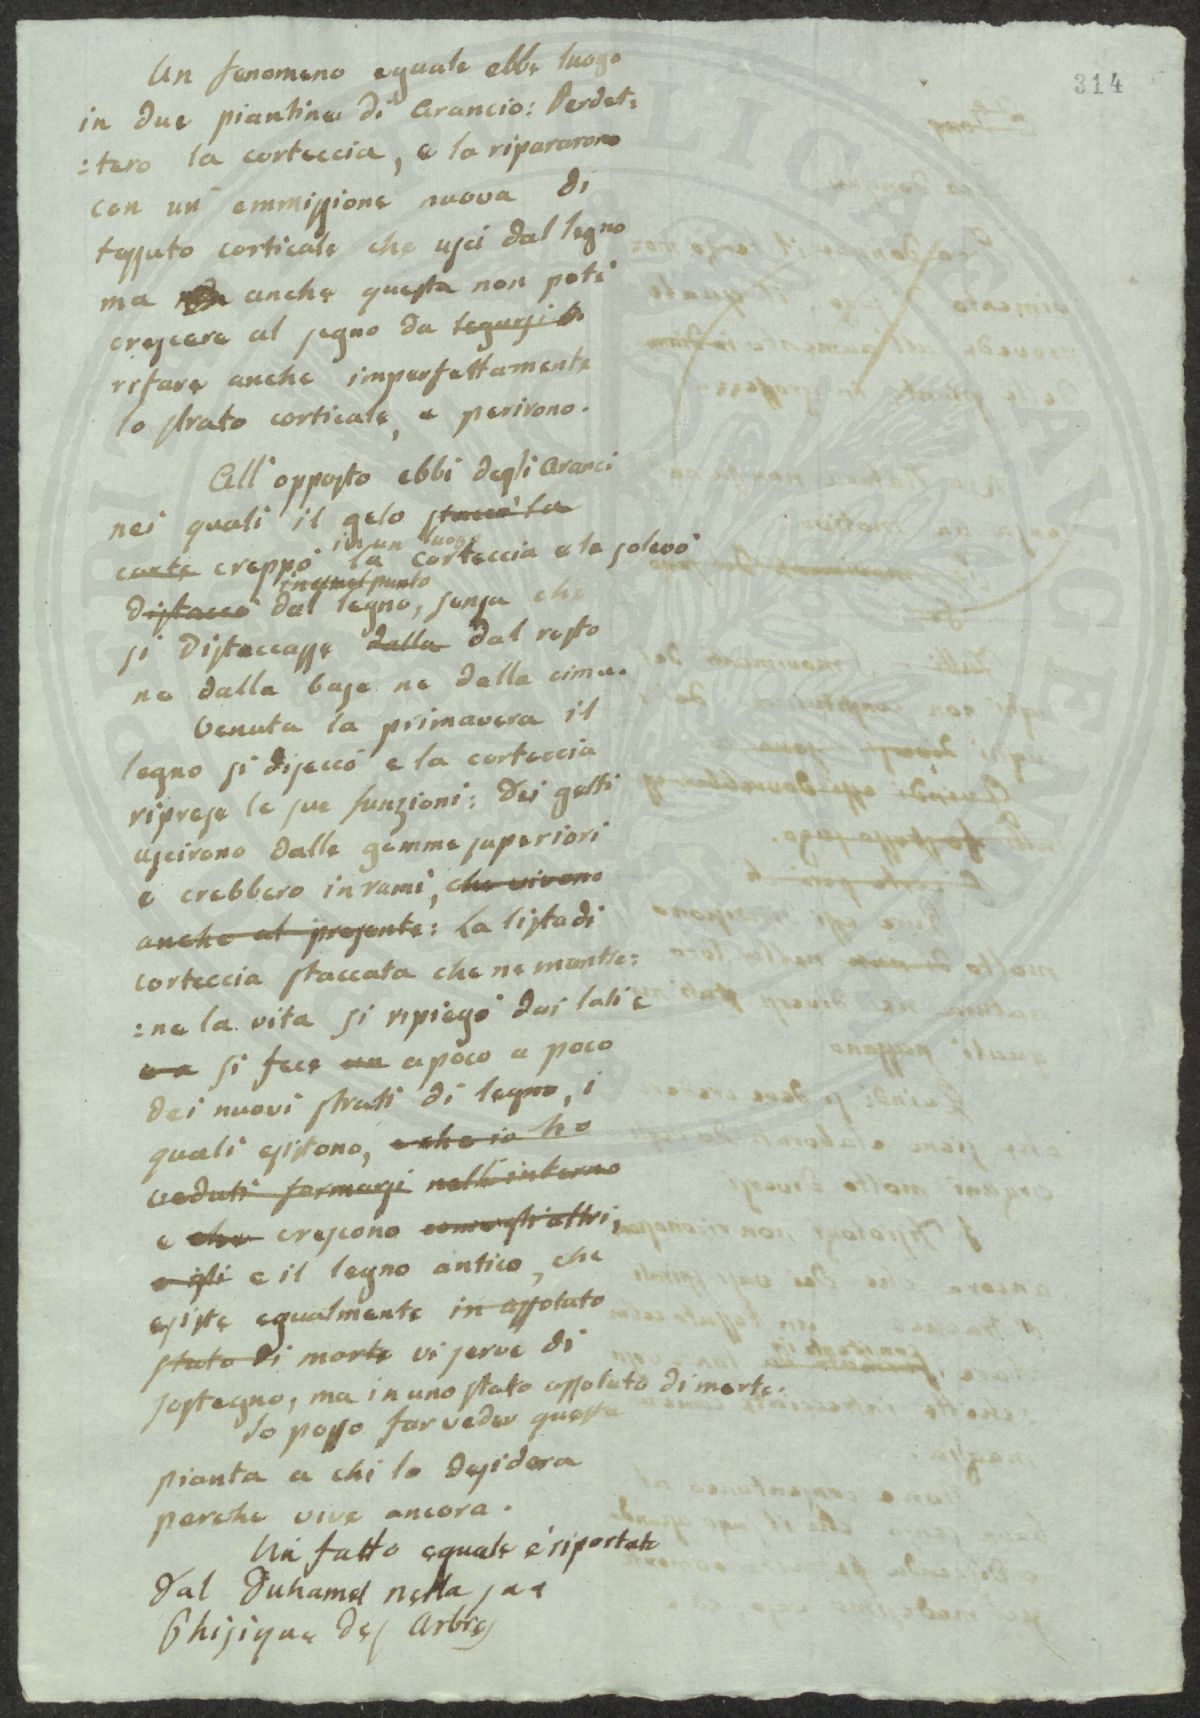 314
Un fenomeno eguale ebbe luogo
in due piantine di Arancio: Perdet:
:tero la corteccia, e la ripararono
con un' emmissione nuova di
tessuto corticale che uscì dal legno
ma anche questa non potè
crescere al segno da legarsi o
rifare anche imperfettamente
lo strato corticale, e perirono.
All' opposto ebbi degli Aranci
nei quali il gelo staccò la
corte creppò in un luogo la corteccia e la solevò
distaccò in quel punto dal legno, senza che
si distaccasse dalla dal resto
ne dalla base ne dalla cima.
Venuta la primavera il
legno si diseccò e la corteccia
riprese le sue funzioni: dei getti
uscirono dalle gemme superiori
e crebbero in rami, che vivono
anche al presente: La lista di
corteccia staccata che ne mante:
:ne la vita si ripiegò dai lati e
e a si fece un a poco a poco
dei nuovi strati di legno, i
quali esistono, e che io ho
veduti formarsi nell'interno
e che crescono come gli altri,
e gli e il legno antico, che
esiste egualmente in assoluto
stato di morte vi serve di
sostegno, ma in uno stato assoluto di morte.
Io posso far veder questa
pianta a chi lo desidera
perche vive ancora.
Un fatto eguale è riportato
dal Duhamel nella sua
Phisique des Arbres